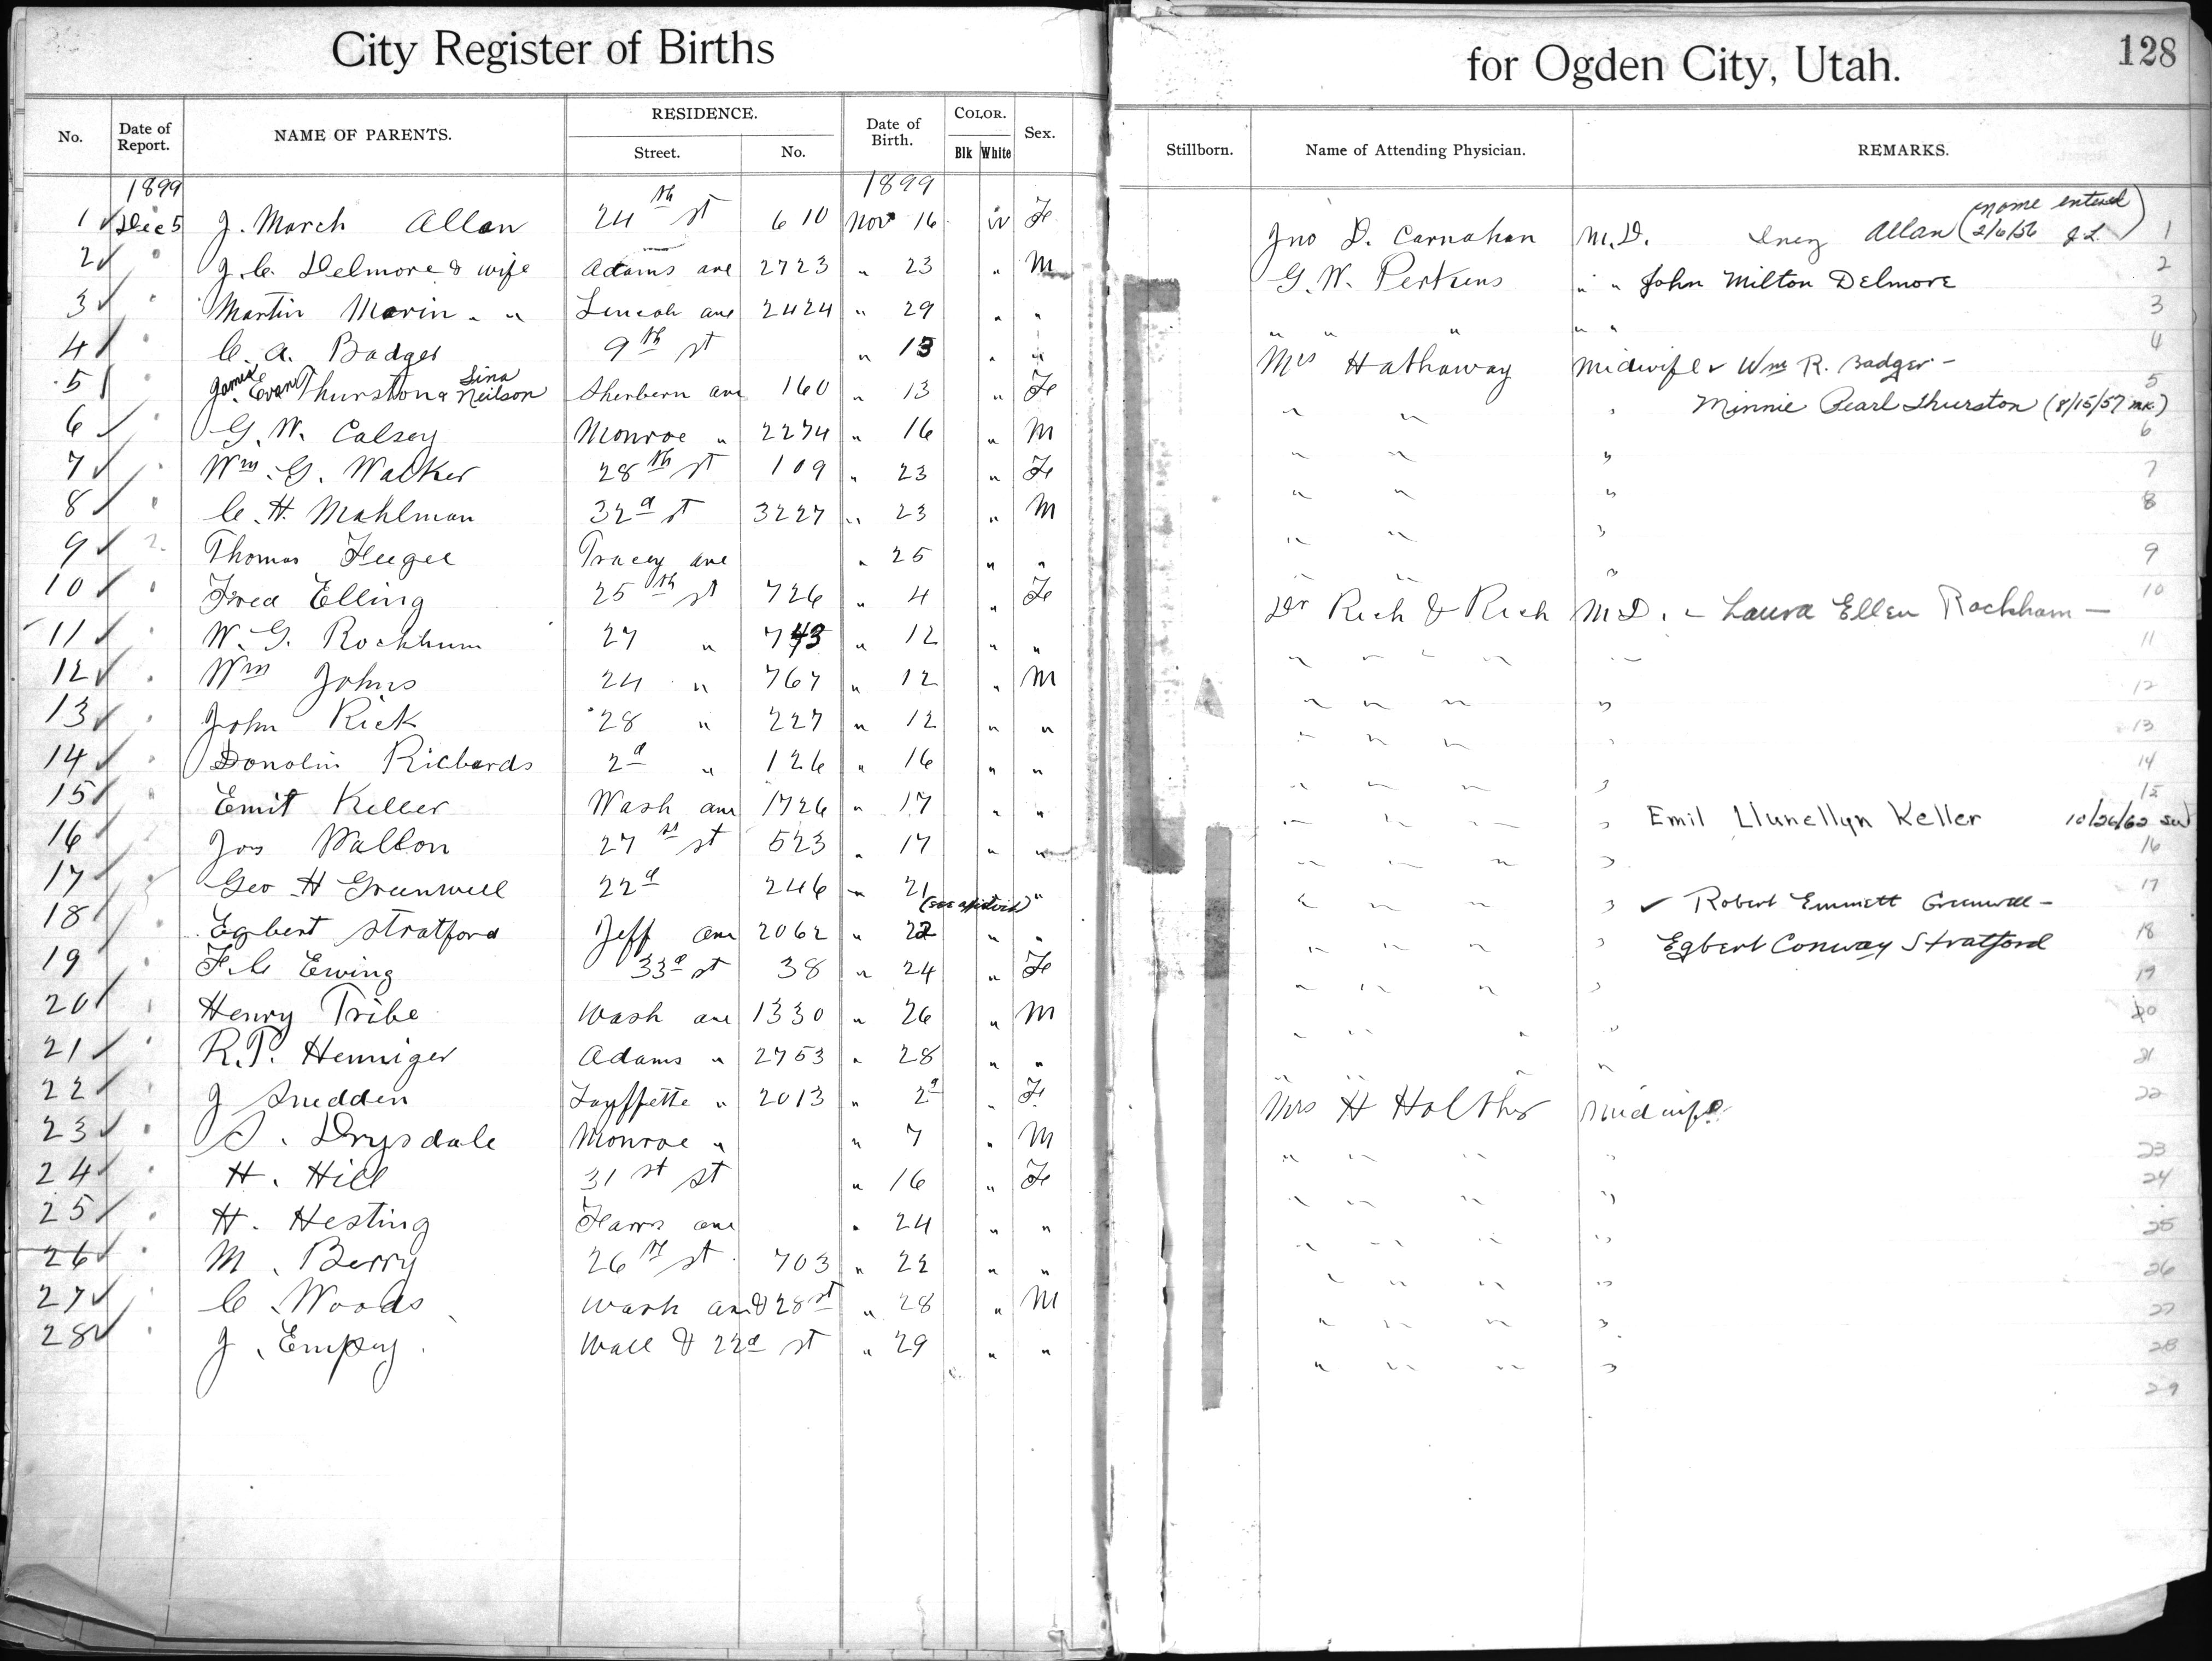 City Register of Births for Ogden City, Utah. 128
No. Date of Report. NAME OF PARENTS. RESIDENCE. Street. No. Date of Birth. COLOR. Blk White Sex. Stillborn. Name of Attending Physician. REMARKS.
1899 1899
1 Dec 5 J. March Allan 24th st 610 Nov 16 W Fe Jno D. Carnahan M.D. Inez Allan (name entered 2/6/56 J L) 1
2 " J. C. Delmore & wife Adams ave 2723 " 23 " M G. W. Perkins " " John Milton Delmore 2
3 " Martin Morin " " Lincoln ave 2424 " 29 " " " " " " " 3
4 " C. A. Badger 9th st " 13 " " Mrs Hathaway Midwife Wm R. Badger - 4
5 " James Evan Thurston & Lina Neilson Sherbern ave 160 " 13 " Fe " " " Minnie Pearl Thurston (8/15/57 mk) 5
6 " G. W. Calsey Monroe " 2274 " 16 " M " " " 6
7 " Wm. G. Walker 28th st 109 " 23 " Fe " " " 7
8 " C. H. Mahlman 32d st 3227 " 23 " M " " " 8
9 " Thomas Feegee Tracey ave " 25 " " " " " 9
10 " Fred Elling 25th st 726 " 4 " Fe Dr Rich & Rich M.D. - Laura Ellen Rackham - 10
11 " W. G. Rockhum 27 " 743 " 12 " " " " " " " 11
12 " Wm Johns 24 " 767 " 12 " M " " " " 12
13 " John Rick 28 " 227 " 12 " " " " " " 13
14 " Donolin Richards 2d " 126 " 16 " " " " " " 14
15 " Emit Keller Wash ave 1726 " 17 " " " " " " Emil Llunellyn Keller 10/26/62 15
16 " Jos Wallon 27th st 523 " 17 " " " " " " 16
17 " Geo H Greenwell 22d 246 " 21 " " " " " Robert Emmett Greenwell - 17
18 " Egbert Stratford Jeff ave 2062 " 22 " " " " " " Egbert Conway Stratford 18
19 F. C Ewing 33d st 38 " 24 " Fe " " " " 19
20 " Henry Tribe Wash ave 1330 " 26 " M " " " " 20
21 " R. P. Henniger Adams " 2753 " 28 " " " " " " 21
22 " J Snedden Layffette " 2013 " 2d " F Mrs H Holther Midwife 22
23 " S. Drysdale Monroe " " 7 " M " " " " 23
24 " H. Hill 31st st " 16 " Fe " " " " 24
25 " H. Hesting Farrs ave " 24 " " " " " " 25
26 " M. Berry 26th st 703 " 22 " " " " " " 26
27 " C. Woods Wash ave & 28st " 28 " M " " " " 27
28 " J. Empey Wall & 22d st " 29 " " " " " " 28
29